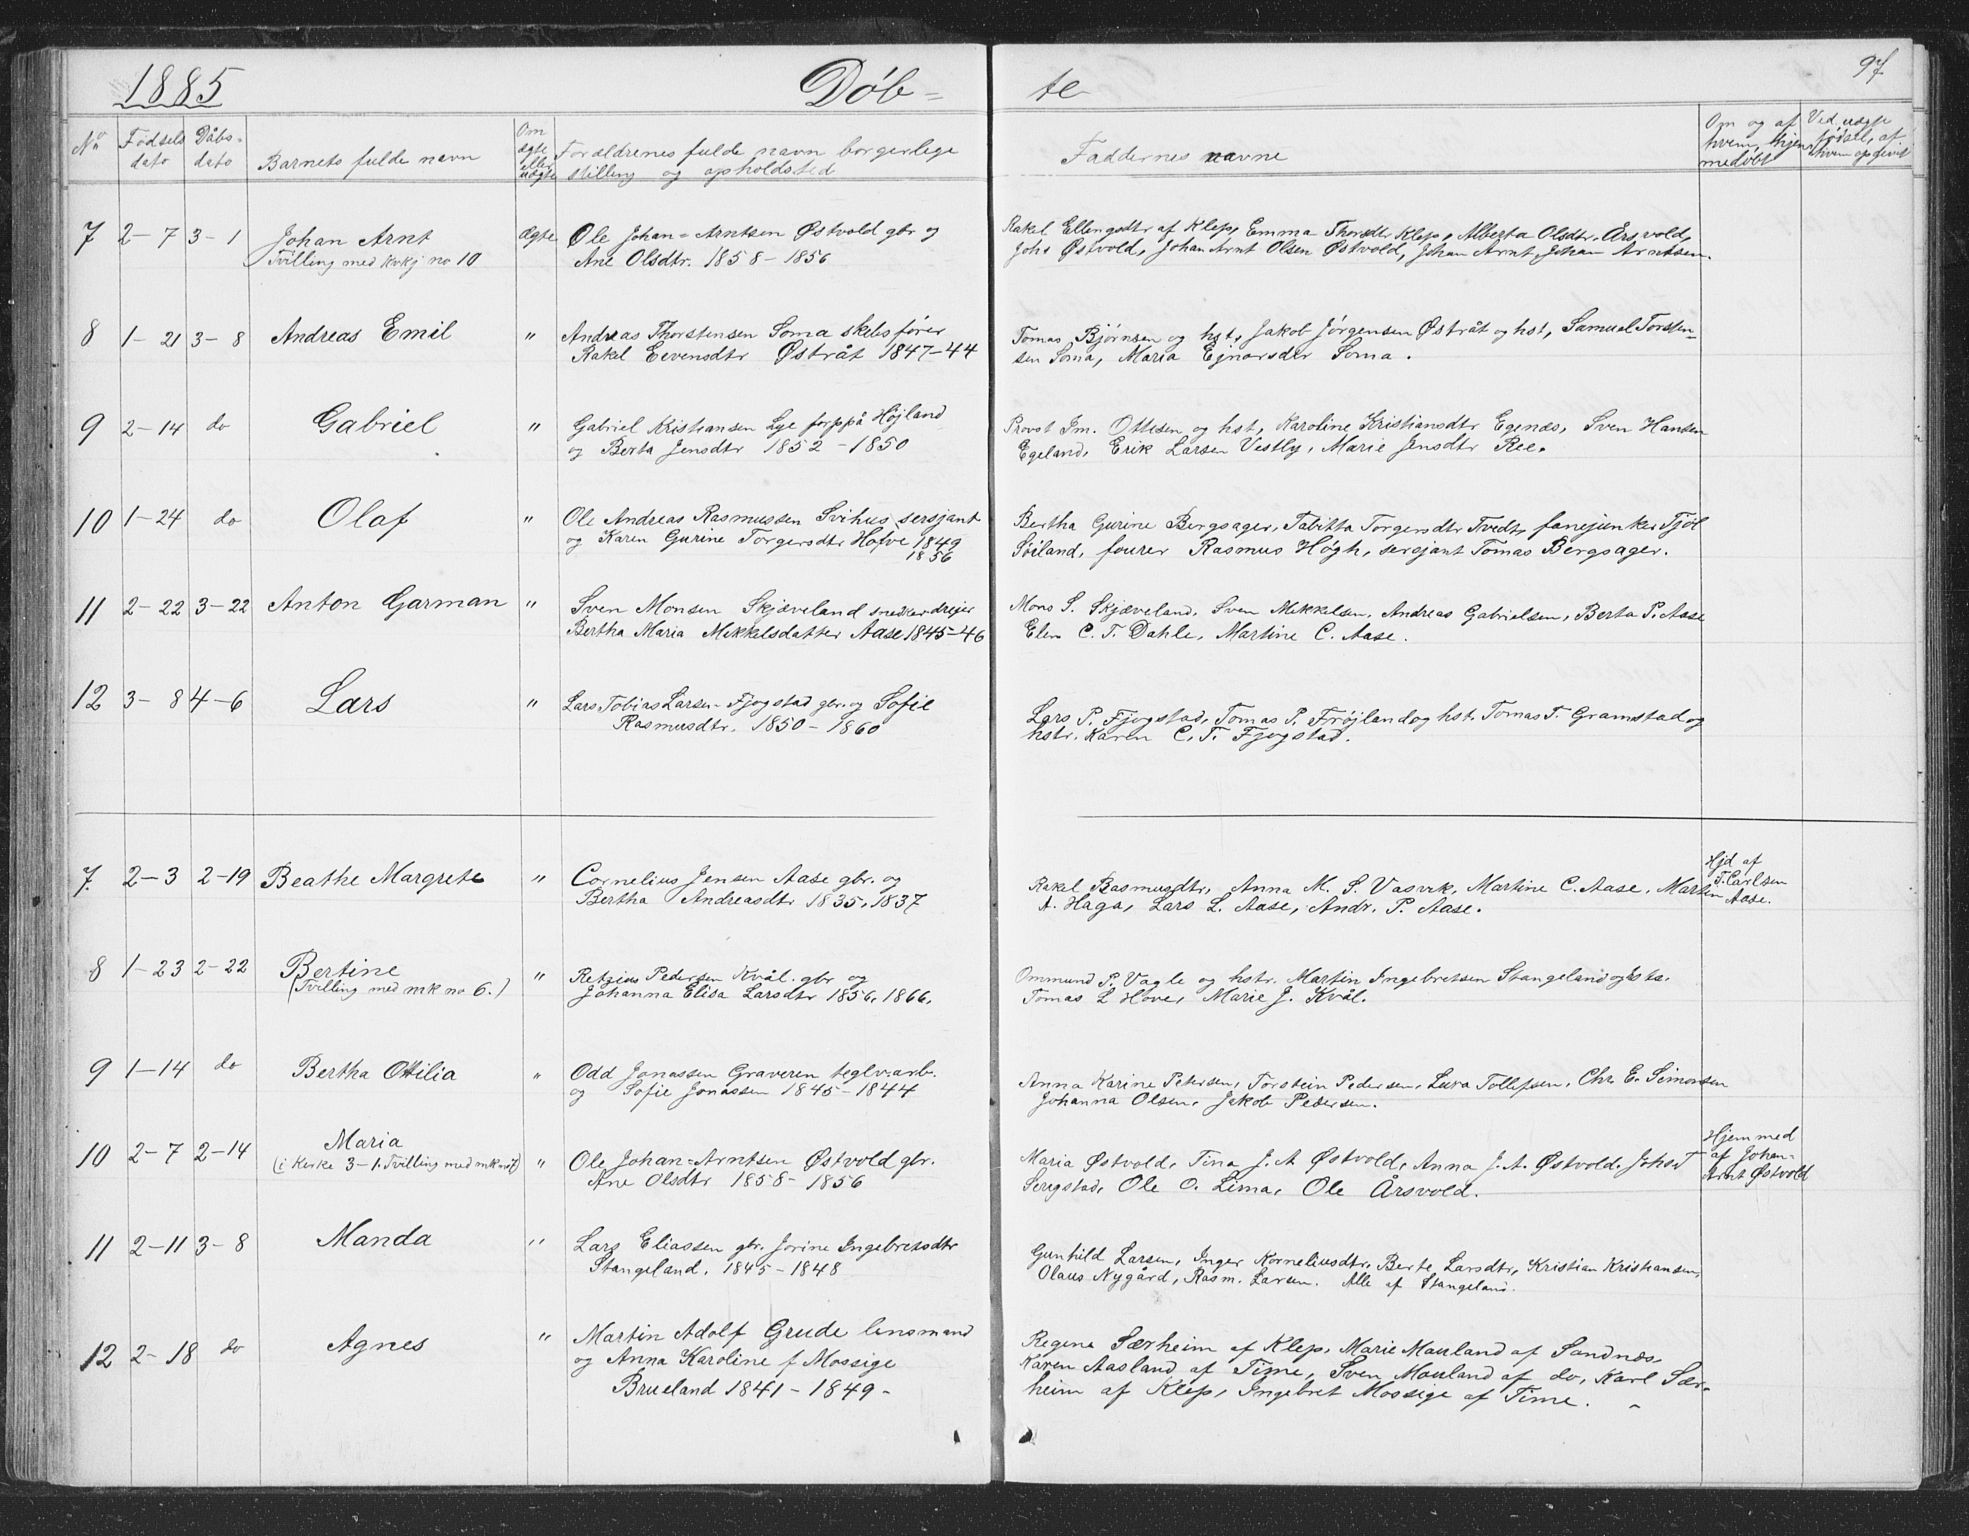 1885 Døb- te 97
No Fødsels dato Dåbs- dato Barnets fulde navn Om ægte eller uægte Forældrenes fulde navn borgerlige stilling og opholdsted Faddernes navne Om og af hvem hjem medøbt Ved uægte fødsel, af hvem opgivit
7 2-7 3-1 Johan Arnt ægte Ole Johan=Arntsen Østvold gbr og
Tvilling med kvkj no 10 Ane Olsdtr. 1858-1856
Rakel Ellengsdtr af Klep, Emma Thorsdtr Klep, Alberta Olsdtr. Årsvold,
Johs Østvold, Johan Arnt Olsen Østvold, Johan Arnt, Johan Arntsen.
8 1-21 3-8 Andreas Emil " Andreas Thorstensen Soma skibsfører
Rakel Eevensdtr Østråt 1847-44
Tomas Bjørnsen og hst, Jakob Jørgensen Østråt og hst, Samuel Torsten=
sen Soma, Maria Ejnarsdtr Soma.
9 2-14 do Gabriel " Gabriel Kristiansen Lye forp på Højland
og Berta Jensdtr 1852-1850
Provst Im. Ottesen og hst, Karoline Kristiansdtr Egenæs, Sven Hansen
Egeland, Erik Larsen Vestly, Marie Jensdtr Ree.
10 1-24 do Olaf " Ole Andreas Rasmussen Svihus, sersjant
og Karen Gurine Torgersdtr Hofve 1849
1856
Bertha Gurine Bergsager, Tabitta Torgersdtr Tvedt, fanejunker Tjöl
Söiland, fourer Rasmus Høgh, sersjant Tomas Bergsager.
11 2-22 3-22 Anton Garman " Sven Monsen Skjæveland snedker drejer
Bertha Maria Mekkelsdatter Aase 1845-46
Mons S. Skjæveland, Sven Mekkelsen, Andreas Gabrielsen, Berta P. Aase
Elen C. T. Dahle, Martine C. Aase.
12 3-8 4-6 Lars " Lars Tobias Larsen Fjogstad gbr. og Sofie
Rasmusdtr. 1850-1860
Lars P. Fjogstad, Tomas P. Frøjland og hst. Tomas T. Gramstad og
hstr. Karen C. T. Fjogstad.
7. 2-3 2-19 Beathe Margrete " Cornelius Jensen Aase gbr. og
Bertha Andreasdtr 1835, 1837
Rakel Rasmusdtr, Anna M. S. Vasvik, Martine C. Aase, Martin
A. Haga, Lars L. Aase, Andr. P. Aase.
Hjd af
T. Carlsen
Aase.
8 1-23 2-22 Bertine " Retzius Pedersen Kvål. gbr og
(Tvilling med mk no 6.) Johanna Elisa Larsdtr 1856, 1866,
Ommund P. Vagle og hstr. Martin Ingebretsen Stangeland og hstr.
Tomas L Hove, Marie J. Kvål.
9 1-14 do Bertha Ottilia " Odd Jonassen Graveren teglv. arb.
og Sofie Jonassen 1845-1844
Anna Karine Petersen, Torstein Pedersen, Lura Tollefsen, Chr. E. Simonsen
Johanna Olsen, Jakob Pedersen.
10 2-7 2-14 Maria " Ole Johan=Arntsen Østvold gbr.
(i Kirke 3-1. Tvilling med mk no 7) Ane Olsdtr 1858-1856
Maria Østvold, Tina J. A Østvold, Anna J. A. Østvold. Johs T
Serigstad, Ole O. Lima, Ole Årsvold.
Hjemmed
af Johan-
Arnt Østvold
11 2-11 3-8 Manda " Lars Eliassen gbr. Jorine Ingebretsdtr
Stangeland. 1845-1848
Gunhild Larsen, Inger Korneliusdtr, Berte Larsdtr, Kristian Kristiansen,
Olaus Nygård, Rasm. Larsen. Alle af Stangeland.
12 2-18 do Agnes " Martin Adolf Grude lensmand
og Anna Karoline f Mossige
Brueland 1841-1849-
Regine Særheim af Klep, Marie Mauland af Sandnæs,
Karen Aasland af Time, Sven Mauland af do, Karl Sær-
heim af Klep, Ingebret Mossige af Time.